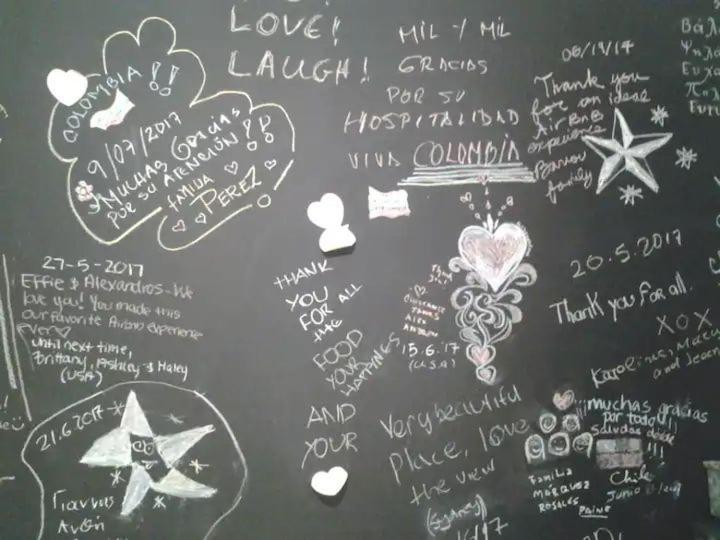 LOVE!
LAUGH!
COLOMBIA !!
9/07/2017
MUCHAS GRACIAS
POR SU ATENCIÓN!!
FAMILIA
PEREZ
MIL Y MIL
GRACIAS
POR SU
HOSPITALIDAD
VIVA COLOMBIA
Thank you
for an ideal
AirBnB
experience
family
27-5-2017
Effie & Alexandros-We
love you! You made this
our favorite Airbnb experience
ever
until next time,
Brittany, Ashley & Haley
(USA)
THANK
YOU
FOR ALL
THE
FOOD
YOUR
HAPPINESS
AND
YOUR
15.6.17
(U.S.A)
20.5.2017
Thank you for all.
XOX
Karolina,
and
21.6.2017
Γιαννης
Very beautiful
place, love
the view
(Sydney)
¡¡¡muchas gracias
por todo!!!
Saludos desde
Chile
Junio
Familia
MÁRQUEZ
ROSALES
PAINE